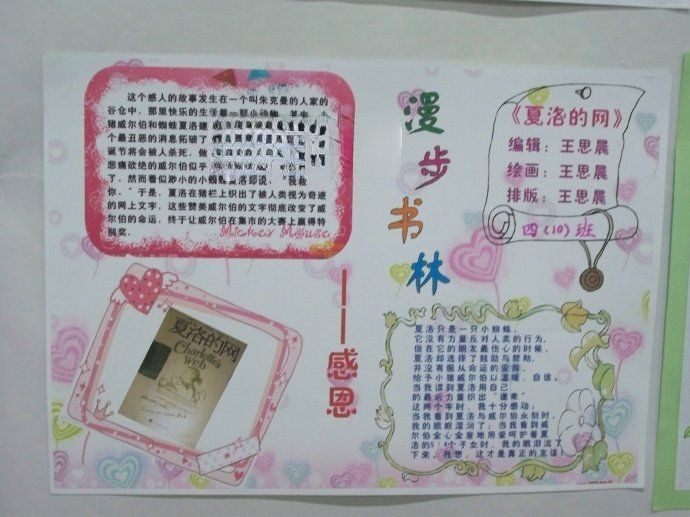 这个感人的故事发生在一个叫朱克曼的人家的
谷仓中，那里快乐的生
猪威尔伯和蜘蛛夏洛建
个最丑恶的消息拓破了
诞节将会被人杀死，做
悲痛欲绝的威尔伯似乎
了，然而看似渺小的小蜘蛛夏洛却说，“我救
你。”于是，夏洛在猪栏上织出了被人类视为奇迹
的网上文字，这些赞美威尔伯的文字彻底改变了威
尔伯的命运，终于让威尔伯在集市的大赛上赢得特
别奖。
Mickey Mouse
漫步书林
——感恩
《夏洛的网》
编辑：王思晨
绘画：王思晨
排版：王思晨
四(10)班
夏洛的网
Charlotte's
Web
夏洛只是一只小蜘蛛，
它没有力量反对人类的行为，
但在它的朋友最伤心的时候，
夏洛却选择了鼓励与帮助，
并没有服从命运的安排，
给予小猪威尔伯以温暖、自信。
当我读到夏洛用自己
的最后力量织出“谦卑”
这两个字时，我十分感动；
当我看到夏洛与威尔伯永别时，
我的眼眶湿润了；当我看到威
尔伯全心全意地用爱呵护着夏
洛的514个子女时，我的眼泪流了
下来，我想，这才是真正的友谊！